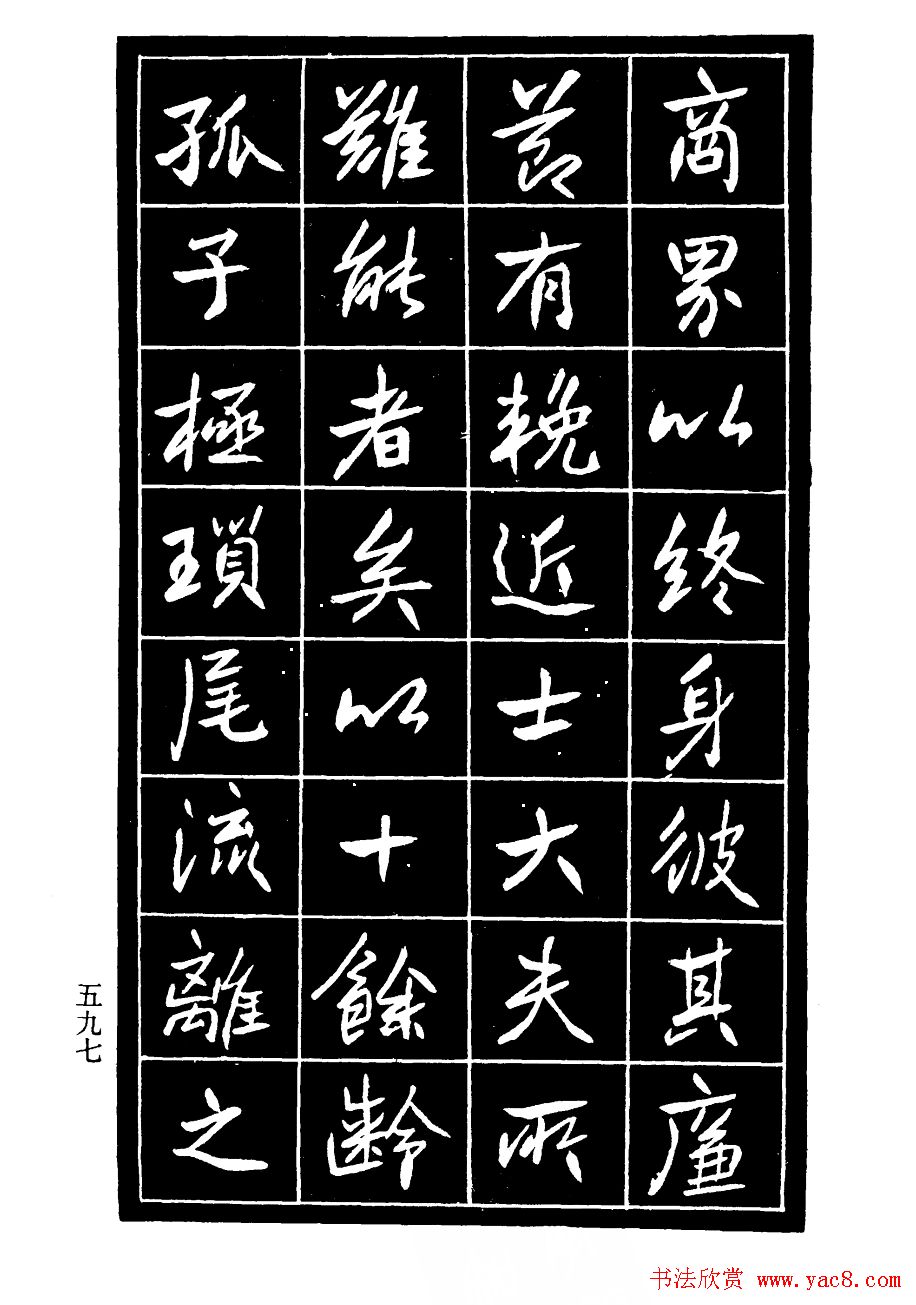 商界以終身彼其廉
節有輓近士大夫所
難能者矣以十餘齡
孤子極瑣尾流離之
五九七
书法欣赏 www.yac8.com